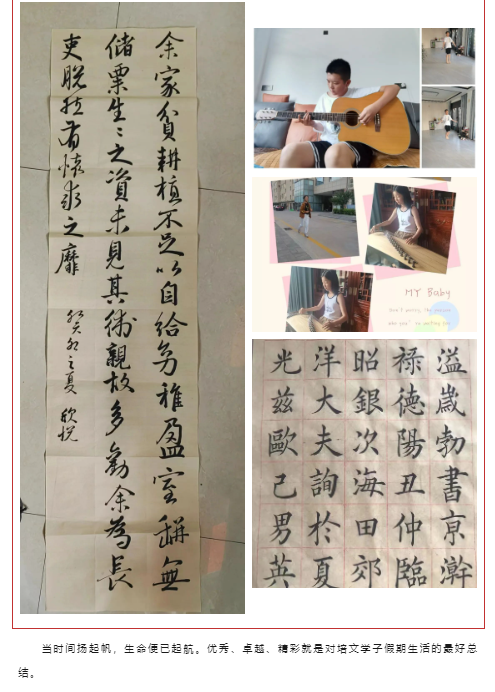 余家貧耕植不足以自給幼稚盈室缾無
儲粟生々之資未見其術親故多勸余為長
吏脫然有懷求之靡
癸卯之夏 欣悦
MY Baby
Don't worry, the
溢歲勃書亰澣
祿德陽丑仲臨
昭銀次海田郊
洋大夫詢於夏
光茲歐己男英
当时间扬起帆，生命便已起航。优秀、卓越、精彩就是对培文学子假期生活的最好总
结。